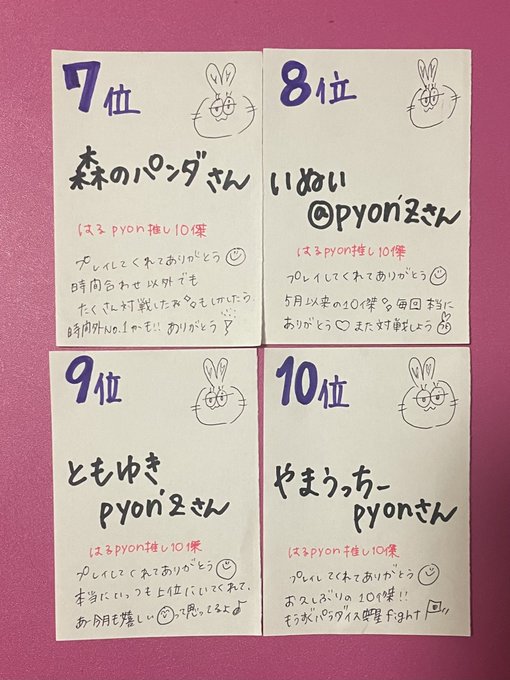 7位
森のパンダさん
はるpyon推し10傑
プレイしてくれてありがとう
時間合わせ以外でも
たくさん対戦したねもしかしたら
時間外No.1かも!! ありがとう
8位
いぬい
@pyon'zさん
はるpyon推し10傑
プレイしてくれてありがとう
5月以来の10傑 毎回本当に
ありがとう♡また対戦しよう
9位
ともゆき
pyon'zさん
はるpyon推し10傑
プレイしてくれてありがとう
本当にいつも上位にいてくれて、
あ〜今月も嬉しいって思ってるよ♪
10位
やまうっちー
pyonさん
はるpyon推し10傑
プレイしてくれてありがとう
お久しぶりの10傑!!
もうすぐパラダイス fight